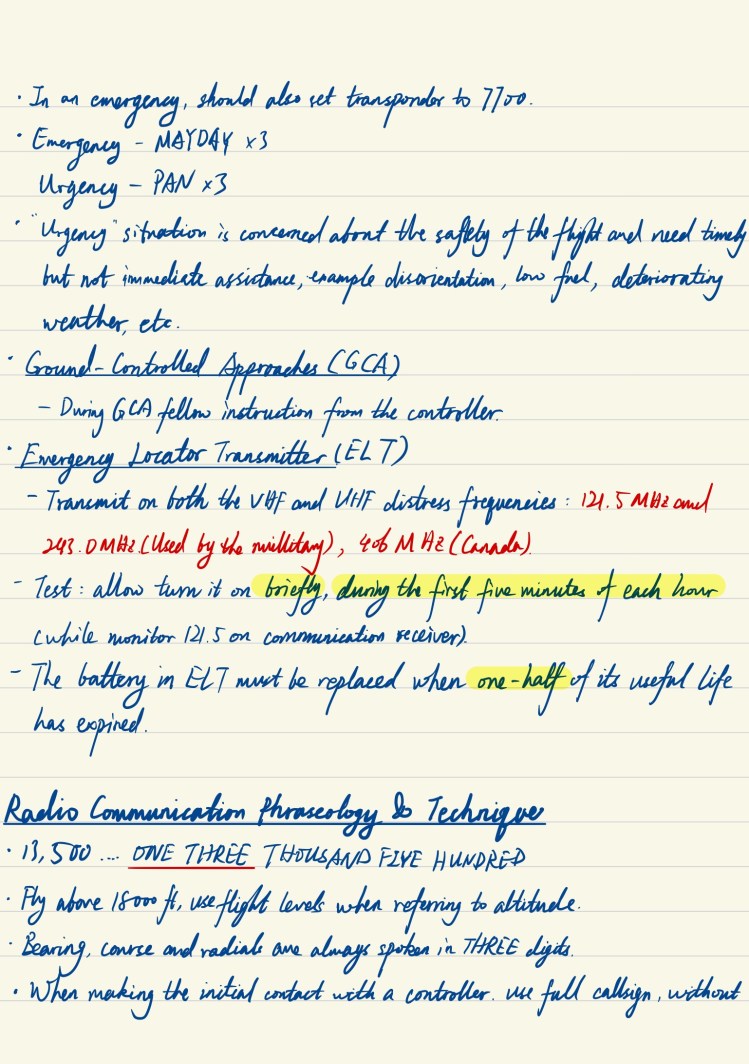 · In an emergency, should also set transponder to 7700.
· Emergency – MAYDAY ×3
Urgency – PAN ×3
· "Urgency" situation is concerned about the safety of the flight and need timely
but not immediate assistance, example disorientation, low fuel, deteriorating
weather, etc.
· Ground-Controlled Approaches (GCA)
– During GCA fellow instruction from the controller.
· Emergency Locator Transmitter (ELT)
– Transmit on both the VHF and UHF distress frequencies : 121.5 MHz and
243.0 MHz (Used by the millitary), 406 MHz (Canada).
– Test : allow turn it on briefly, during the first five minutes of each hour
(while monitor 121.5 on communication receiver).
– The battery in ELT must be replaced when one-half of its useful life
has expired.
Radio Communication Phraseology & Technique
· 13,500 .... ONE THREE THOUSAND FIVE HUNDRED
· Fly above 18000 ft, use flight levels when referring to altitude.
· Bearing, course and radials are always spoken in THREE digits.
· When making the initial contact with a controller. use full callsign, without